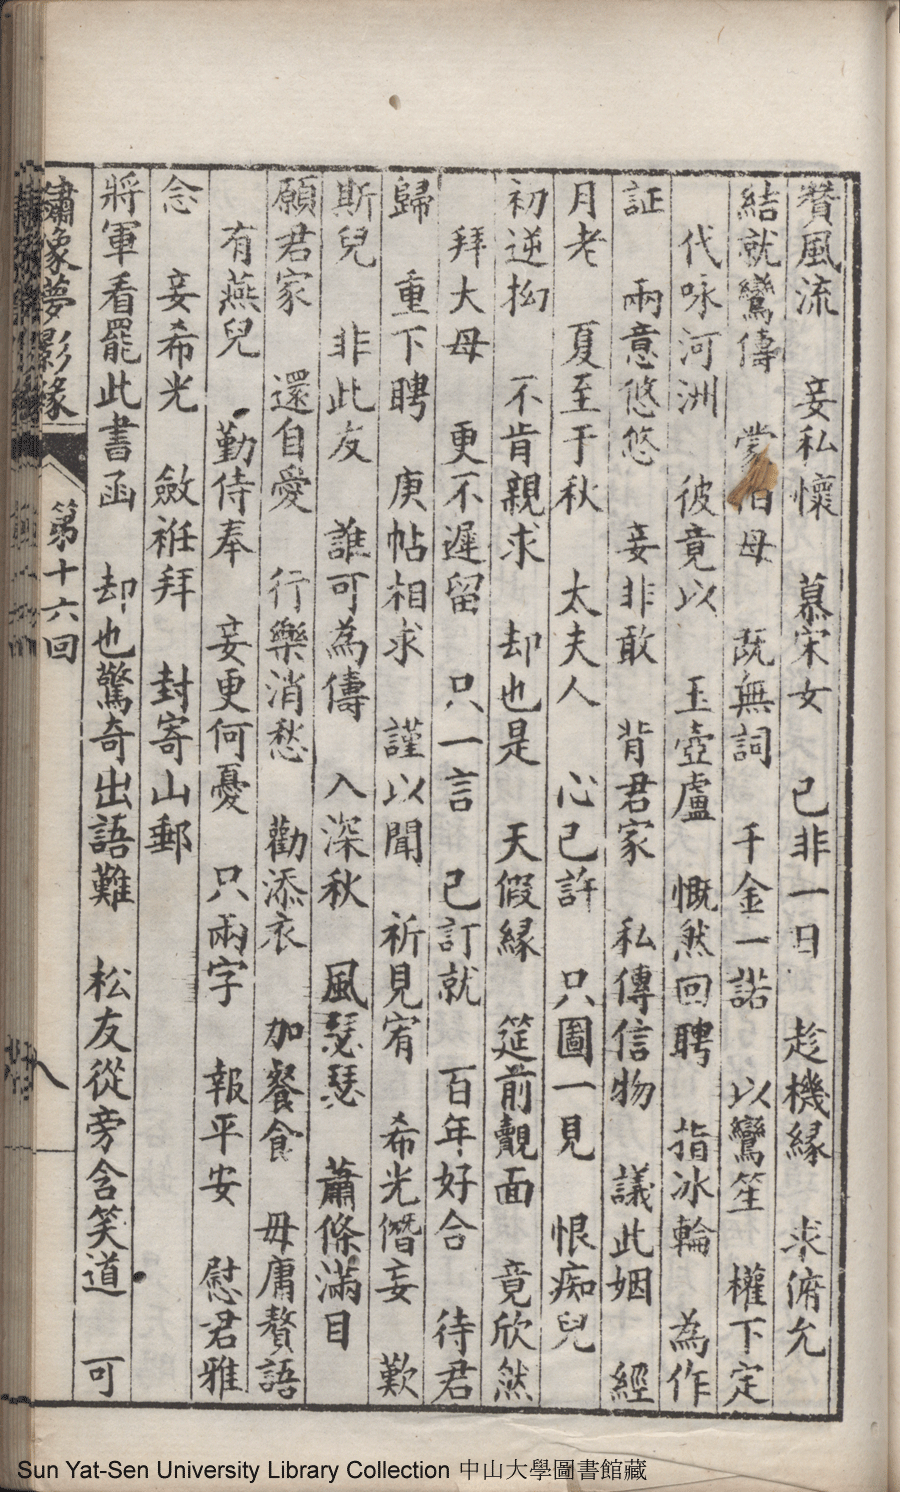 贊風流　妾私懷　慕宋女　已非一日　趁機緣　求俯允
結就鸞儔　蒙伯母　既無詞　千金一諾　以鸞笙　權下定
代咏河洲　彼竟以　玉壺盧　慨然回聘　指冰輪　為作
証　兩意悠悠　妾非敢　背君家　私傳信物　議此姻　經
月老　夏至于秋　太夫人　心已許　只圖一見　恨痴兒
初逆拗　不肯親求　却也是　天假緣　筵前覿面　竟欣然
拜大母　更不遲留　只一言　已訂就　百年好合　待君
歸　重下聘　庚帖相求　謹以聞　祈見宥　希光僭妄　歎
斯兒　非此友　誰可為儔　入深秋　風瑟瑟　蕭條滿目
願君家　還自愛　行樂消愁　勸添衣　加餐食　毋庸贅語
有燕兒　勤侍奉　妾更何憂　只兩字　報平安　慰君雅
念　妾希光　斂衽拜　封寄山郵
將軍看罷此書函　却也驚奇出語難　松友從旁含笑道　可
繡像夢影緣　第十六回　八
Sun Yat-Sen University Library Collection 中山大學圖書館藏